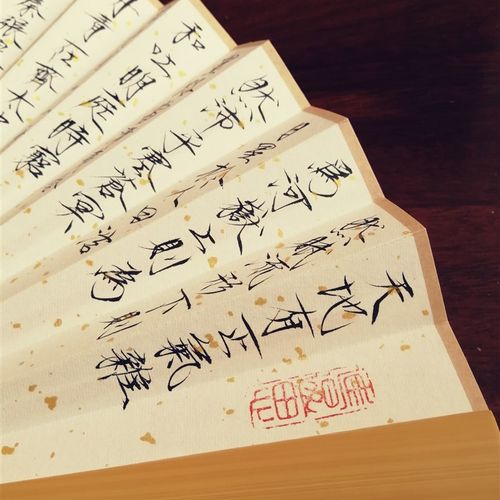 天地有正氣雜
然賦流形下則
爲河嶽上則為
日星於人曰浩
然沛乎塞蒼冥
和吐明庭時窮
青在齊太
秦張